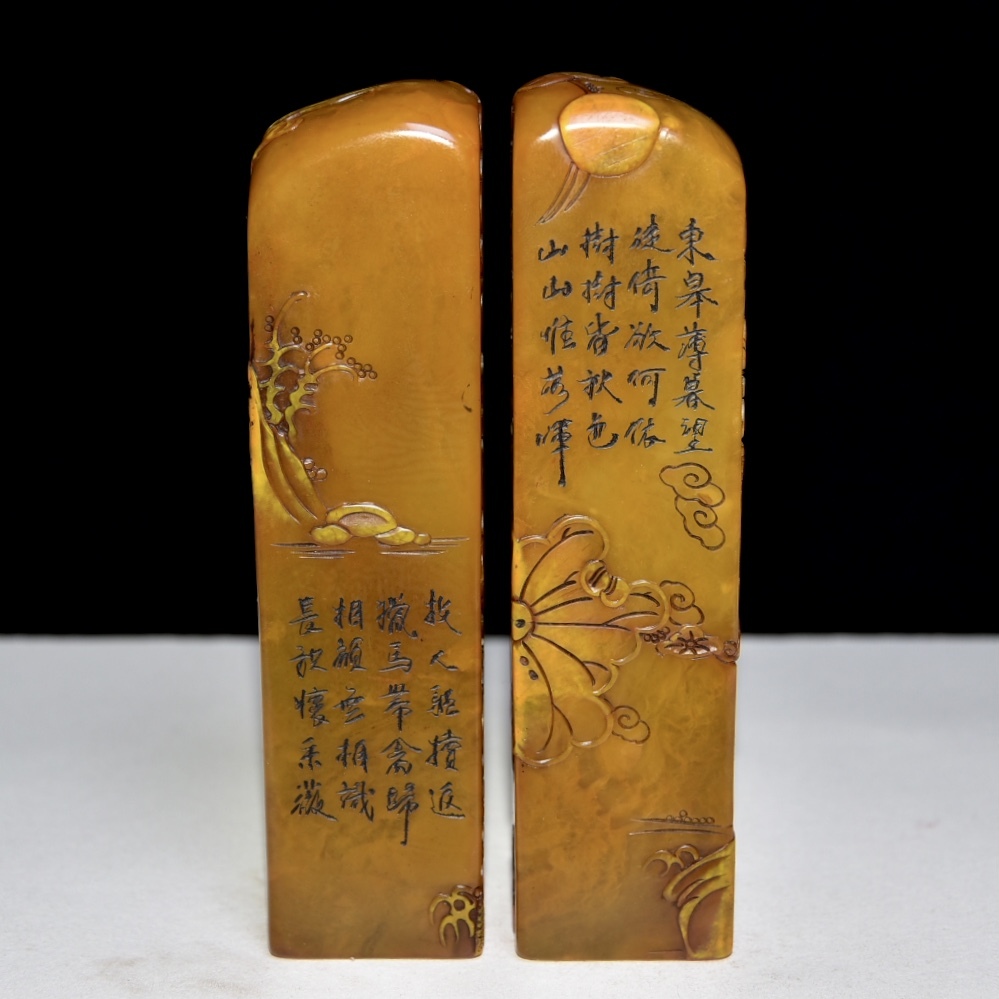 東皋薄暮望
徙倚欲何依
樹樹皆秋色
山山惟落暉
牧人驅犢返
獵馬帶禽歸
相顧無相識
長歌懷采薇